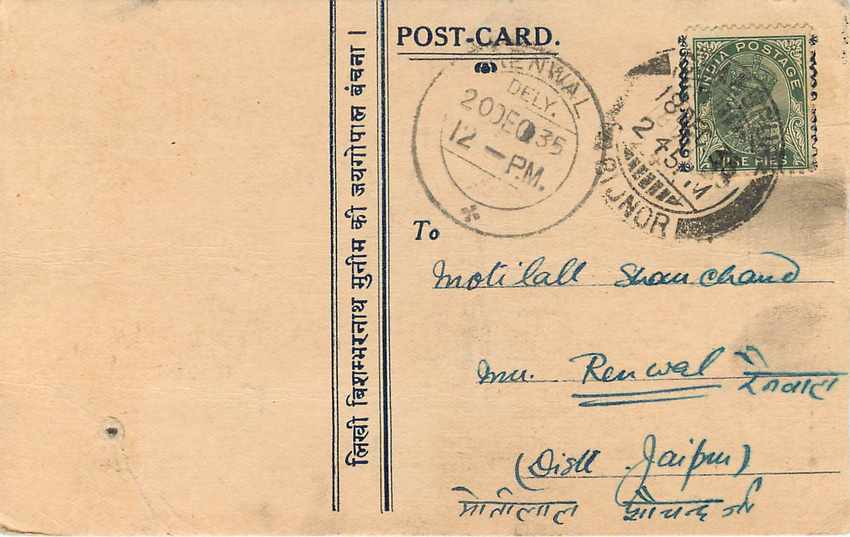 लिखी बिशम्भरनाथ मुनीम की जयगोपाल बंचना ।
POST-CARD.
RENWAL
DELY.
20 DEC 35
12 - PM.
INDIA POSTAGE
PIES
2 45 PM
BIJNOR
To
Motilall
Renwal रेनवाल
(Distt Jaipur)
मोतीलाल